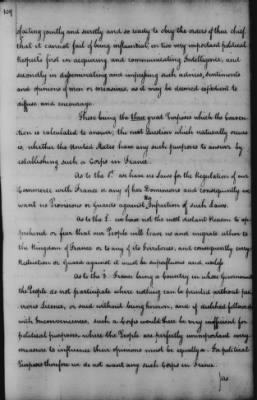 109
of acting jointly and surely and so ready to obey the orders of this chief
that it cannot fail of being influential, in two very important political
Respects first in acquiring and communicating Intelligence, and
secondly in disseminating and impressing such advices, sentiments
and opinions of men or measures, as it may be deemed expedient to
diffuse and encourage.
These being the three great Purposes which the Conven-
tion is calculated to answer; the next Question which naturally arises
is, whether the United States have any such purposes to answer by
establishing such a Corps in France.
As to the 1st we have no Laws for the Regulation of our
Commerce with France or any of her Dominions and consequently we
want no Provisions or Guards against the Infraction of such Laws.
As to the 2. we have not the most distant Reason to ap-
prehend or fear that our People will leave us and migrate either to
the Kingdom of France or to any of its Territories, and consequently every
Restriction or Guard against it must be superfluous and useless
As to the 3. France being a Country in whose Government
the People do not participate where nothing can be printed without pre-
vious License, or said without being known, and if disliked followed
with Inconveniences, such a Corps would there be very inefficient for
political purposes, where the People are perfectly unimportant every
measure to influence their opinions must be equally so. For political
Purposes therefore we do not want any such Corps in France.